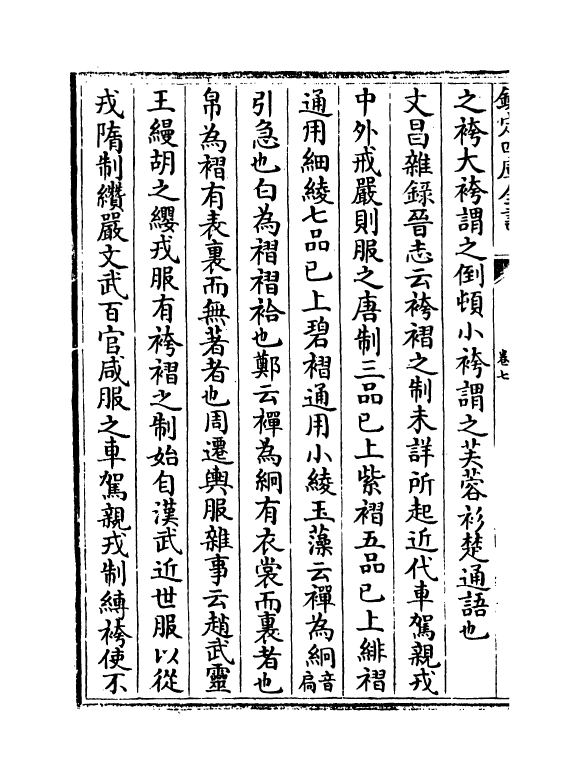 欽定四庫全書
卷七
之袴大袴謂之倒頓小袴謂之芙蓉衫楚通語也
文昌雜錄晉志云袴褶之制未詳所起近代車駕親戎
中外戒嚴則服之唐制三品已上紫褶五品已上緋褶
通用細綾七品已上碧褶通用小綾玉藻云襌為絅音扃
引急也白為褶褶袷也鄭云襌為絅有衣裳而裏者也
帛為褶有表裏而無著者也周遷輿服雜事云趙武靈
王縵胡之纓戎服有袴褶之制始自漢武近世服以從
戎隋制纘嚴文武百官咸服之車駕親戎制縛袴使不